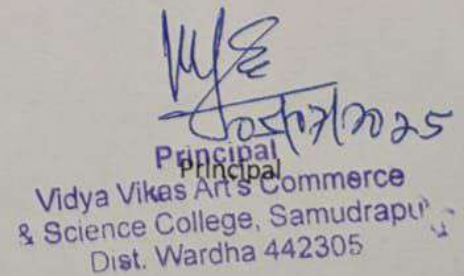 05/07/2025
Principal
Principal
Vidya Vikas Art's Commerce
& Science College, Samudrapur
Dist. Wardha 442305